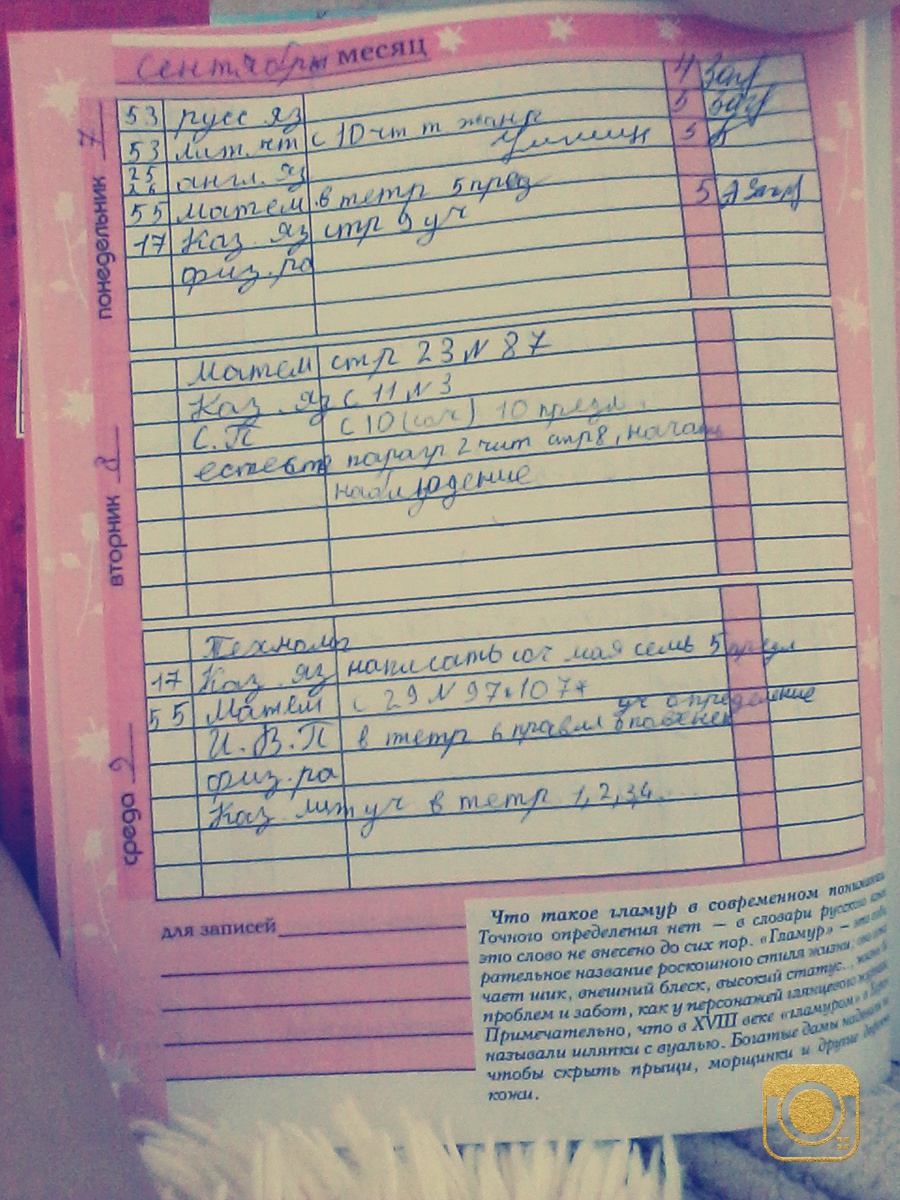 сентябрь месяц
понедельник 7
53 русс яз 4
53 лит.чт с 10 чит 5
25 26 англ. яз 5
55 матем в тетр 5 пред 5
17 Каз. яз стр 9 уч
физ.ра
вторник 8
матем стр 23 № 87
Каз. яз с 11 № 3
С.П с 10 (соч) 10 предл.
естевтв парагр 2 чит стр 8, начать
наблюдение
среда 9
Технолог
17 Каз. яз написать соч мая семь 5 предл
55 Матем с 29 № 97, 107*
уч определение
И.В.П в тетр 6 правил
физ.ра
Каз лит уч в тетр 1,2,3,4....
для записей
Что такое гламур в современном
Точного определения нет — в словари русского
это слово не внесено до сих пор. «Гламур» —
рательное название роскошного стиля жизни,
чает шик, внешний блеск, высокий статус...
проблем и забот, как у персонажей глянцевого
Примечательно, что в XVIII веке «гламуром» в
называли шляпки с вуалью. Богатые дамы
чтобы скрыть прыщи, морщинки и другие
кожи.